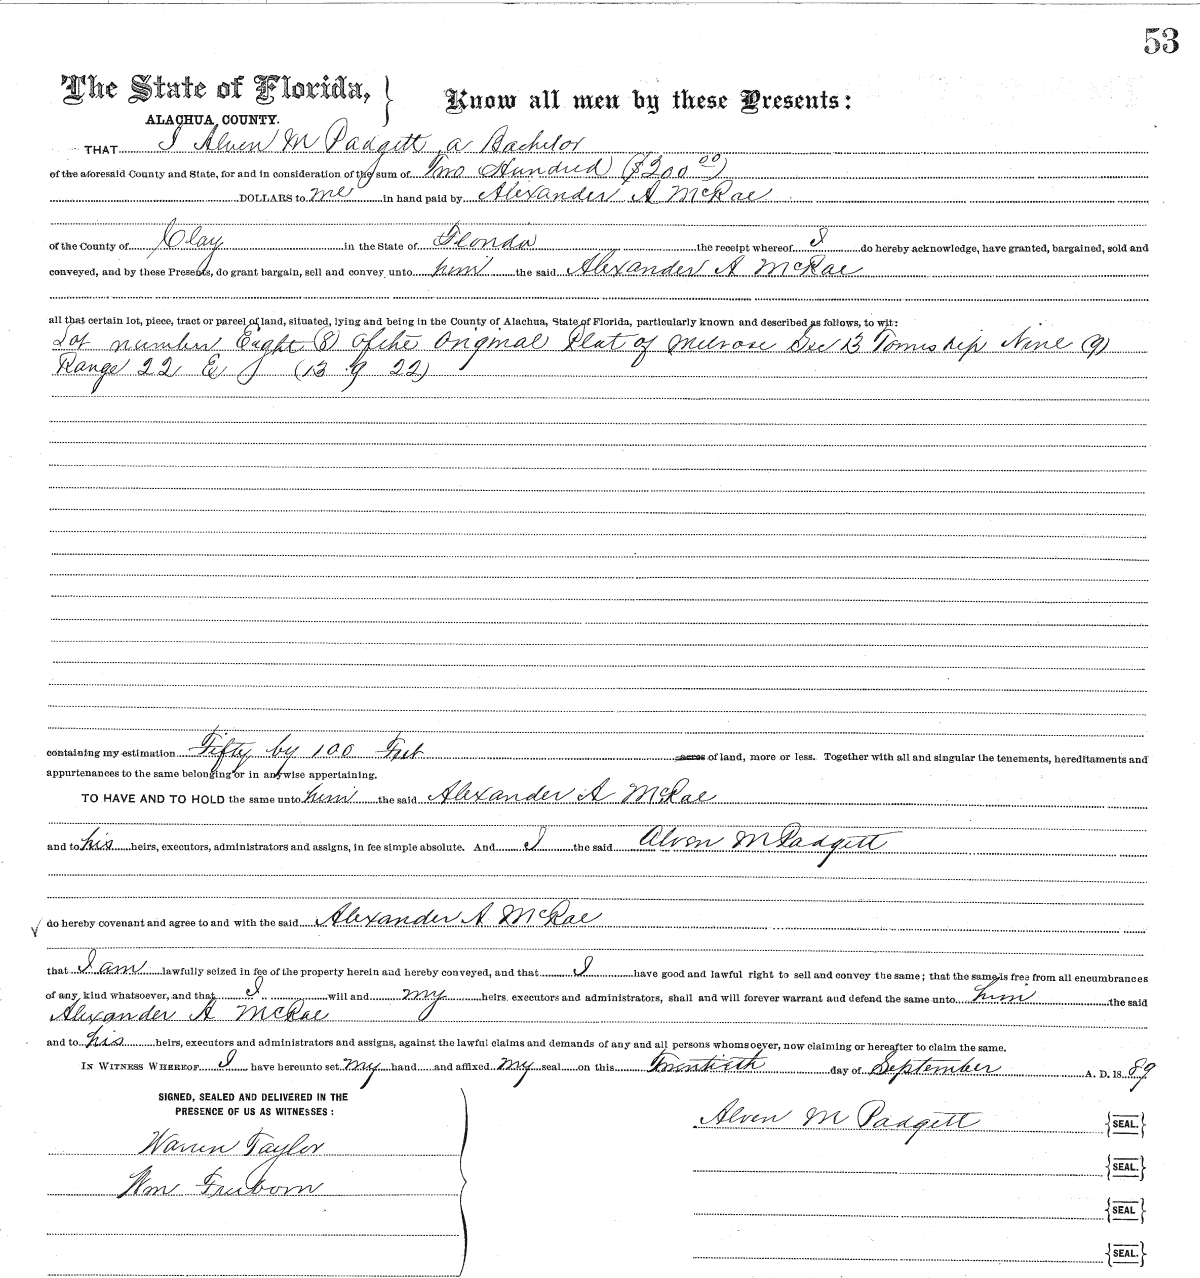 53
The State of Florida, } Know all men by these Presents:
ALACHUA COUNTY.
THAT I Alven M Padgett a Bachelor
of the aforesaid County and State, for and in consideration of the sum of Two Hundred ($200 00)
DOLLARS to me in hand paid by Alexander A McRae
of the County of Clay in the State of Florida the receipt whereof I do hereby acknowledge, have granted, bargained, sold and
conveyed, and by these Presents, do grant bargain, sell and convey unto him the said Alexander A McRae
all that certain lot, piece, tract or parcel of land, situated, lying and being in the County of Alachua, State of Florida, particularly known and described as follows, to wit:
Lot number Eight (8) of the Original Plat of Melrose Sec 13 Township Nine (9)
Range 22 E (13 9 22)
containing my estimation Fifty by 100 Feet acres of land, more or less. Together with all and singular the tenements, hereditaments and
appurtenances to the same belonging or in anywise appertaining.
TO HAVE AND TO HOLD the same unto him the said Alexander A McRae
and to his heirs, executors, administrators and assigns, in fee simple absolute. And I the said Alven M Padgett
do hereby covenant and agree to and with the said Alexander A McRae
that I am lawfully seized in fee of the property herein and hereby conveyed, and that I have good and lawful right to sell and convey the same; that the same is free from all encumbrances
of any kind whatsoever, and that I will and my heirs executors and administrators, shall and will forever warrant and defend the same unto him the said
Alexander A McRae
and to his heirs, executors and administrators and assigns, against the lawful claims and demands of any and all persons whomsoever, now claiming or hereafter to claim the same.
IN WITNESS WHEREOF I have hereunto set my hand and affixed my seal on this Twentieth day of September A. D. 18 89
SIGNED, SEALED AND DELIVERED IN THE
PRESENCE OF US AS WITNESSES:
Alven M Padgett {SEAL.}
Warren Taylor
{SEAL.}
Wm Freeborn
{SEAL}
{SEAL.}